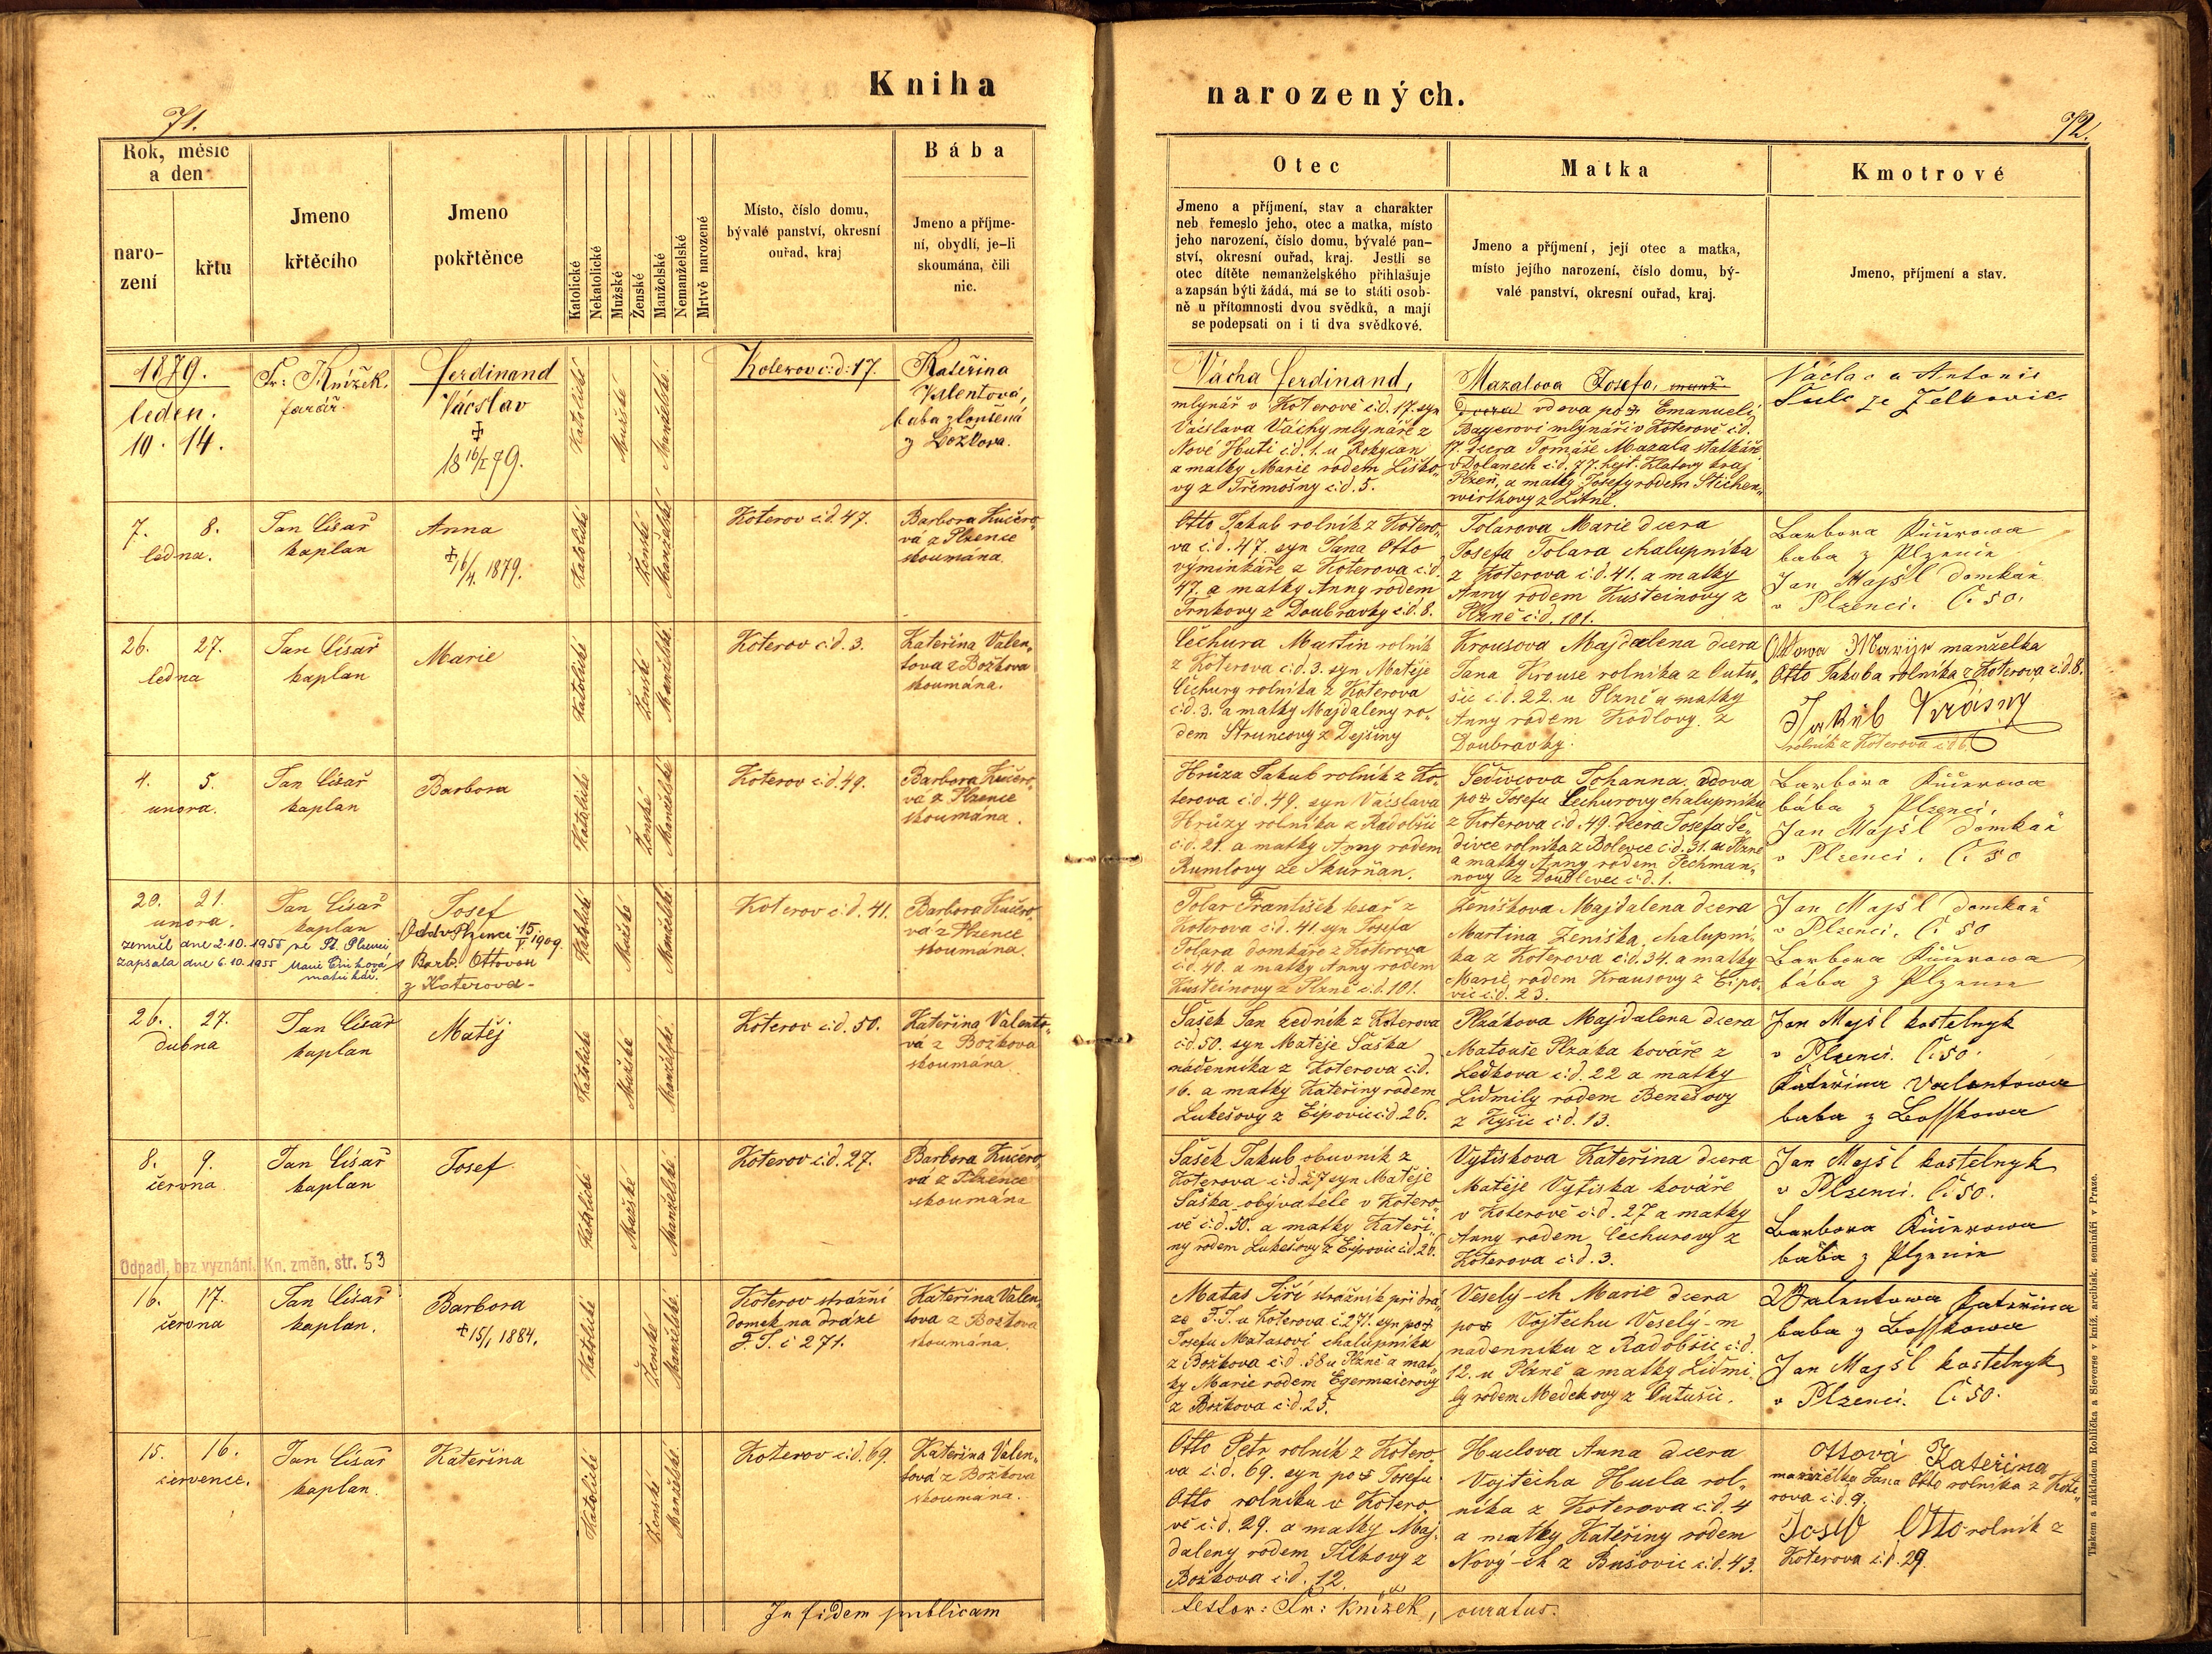 Kniha
narozených.
71.
72.
Rok, měsíc
a den
naro-
zení
křtu
Jmeno
křtěcího
Jmeno
pokřtěnce
Katolické
Nekatolické
Mužské
Ženské
Manželské
Nemanželské
Mrtvě narozené
Místo, číslo domu,
bývalé panství, okresní
ouřad, kraj
Bába
Jmeno a příjme-
ní, obydlí, je-li
skoumána, čili
nic.
Otec
Jmeno a příjmení, stav a charakter
neb řemeslo jeho, otec a matka, místo
jeho narození, číslo domu, bývalé pan-
ství, okresní ouřad, kraj. Jestli se
otec dítěte nemanželského přihlašuje
a zapsán býti žádá, má se to státi osob-
ně u přítomnosti dvou svědků, a mají
se podepsati on i ti dva svědkové.
Matka
Jmeno a příjmení, její otec a matka,
místo jejího narození, číslo domu, bý-
valé panství, okresní ouřad, kraj.
Kmotrové
Jmeno, příjmení a stav.
1879.
leden.
10. 14.
Fr: Knížek.
farář.
Ferdinand
Václav
✝
18 16/I 79.
Katolické
Mužské
Manželské
Koterov č:d: 17.
Kateřina
Valentová,
baba zkoušená
z Božkova.
Vácha Ferdinand,
mlynář v Koterově č:d. 17. syn
Václava Váchy mlynáře z
Nové Huti č:d. 1. u Rokycan
a matky Marie rodem Liško„
vy z Třemošny č:d. 5.
Mazalova Josefa,
vdova po ✝ Emanueli
Bayerovi mlynáři v Koterově č:d.
17. dcera Tomáše Mazala statkáře
v Dolanech č:d. 77. hejt. Klatovy kraj
Plzeň, a matky Josefy rodem Stichen„
wirthovy z Litně.
Václav a Antonie
7. 8.
ledna.
Jan Císař
kaplan
Anna
✝ 16/4. 1879.
Katolické
Ženské
Manželské
Koterov č:d. 47.
Barbora Kučero„
vá z Plzence
skoumána.
Otto Jakub rolník z Kotero„
va č:d. 47. syn Jana Otto
výminkáře z Koterova č:d.
47. a matky Anny rodem
Trnkovy z Doubravky č:d. 8.
Tolarova Marie dcera
Josefa Tolara chalupníka
z Koterova č:d. 41. a matky
Anny rodem Kusteinovy z
Plzně č:d. 101.
Barbora Kučerowa
baba z Plzenie
Jan Majšl domkař
v Plzenci. Č: 50.
26. 27.
ledna
Jan Císař
kaplan
Marie
Katolické
Ženské
Manželské
Koterov č:d. 3.
Kateřina Valen„
tova z Božkova
skoumána.
Čechura Martin rolník
z Koterova č:d. 3. syn Matěje
Čechury rolníka z Koterova
č:d. 3. a matky Majdaleny ro„
dem Struncovy z Dejšiny
Krousova Majdalena dcera
Jana Krouse rolníka z Lutu„
šic č:d. 22. u Plzně a matky
Anny rodem Kodlovy z
Doubravky.
Ottowa Marije manželka
Otto Jakuba rolníka z Koterova č:d. 8.
Jakub Krásný
rolník z Koterova č:d 6.
4. 5.
unora.
Jan Císař
kaplan
Barbora
Katolické
Ženské
Manželské
Koterov č:d. 49.
Barbora Kučero„
vá z Plzence
skoumána.
Hrůza Jakub rolník z Ko„
terova č:d. 49. syn Václava
Hrůzy rolníka z Radobšic
č:d. 21. a matky Anny rodem
Rumlovy ze Skurňan.
Šedivcova Johanna, vdova
po ✝ Josefu Čechurovy chalupníku
z Koterova č:d. 49. dcera Josefa Še„
divce rolníka z Bolevce č:d. 31. u Plzně
a matky Anny rodem Pechman„
novy z Doudlevec č:d. 1.
Barbora Kučerowa
bába z Plzenci,
Jan Majšl domkař
v Plzenci. Č: 50
20. 21.
unora.
Jan Císař
kaplan
Josef
Odd v Plzenci 15/V 1909.
s Barb. Ottovou
z Koterova-
zemřel dne 2.10.1955 ve St. Plzenci
zapsala dne 6.10.1955 Marie
matrikář.
Katolické
Mužské
Manželské
Koterov č:d. 41.
Barbora Kučero„
vá z Plzence
skoumána.
Tolar František tesař z
Koterova č:d. 41. syn Josefa
Tolara domkáře z Koterova
č:d. 40. a matky Anny rodem
Kusteinovy z Plzně č:d. 101.
Ženíškova Majdalena dcera
Martina Ženíška, chalupní„
ka z Koterova č:d. 34. a matky
Marie, rodem Krausovy z Ejpo„
vic č:d. 23.
Jan Majšl domkař
v Plzenci. Č: 50
Barbora Kučerowa
bába z Plzenie
26. 27.
dubna
Jan Císař
kaplan
Matěj
Katolické
Mužské
Manželské
Koterov č:d. 50.
Kateřina Valento„
vá z Božkova
skoumána
Sašek Jan zedník z Koterova
č:d. 50. syn Matěje Saška
nádenníka z Koterova č:d.
16. a matky Kateřiny rodem
Lukešovy z Ejpovic č:d. 26.
Plzákova Majdalena dcera
Matouše Plzaka kováře z
Ledkova č:d. 22 a matky
Lidmily rodem Benešovy
z Kyšic č:d. 13.
Jan Majšl kostelnyk
v Plzenci. Č: 50.
Kateřina Valentowa
baba z Bosskowa
8. 9.
června
Jan Císař
kaplan
Josef
Odpadl, bez vyznání. Kn. změn, str. 53
Katolické
Mužské
Manželské
Koterov č:d. 27.
Barbora Kučero„
vá z Plzence
skoumána
Sašek Jakub obuvník z
Koterova č:d. 27 syn Matěje
Saška obývatele v Kotero„
vě č:d. 50. a matky Kateři„
ny rodem Lukešovy z Ejpovic č:d. 26.
Vytiskova Kateřina dcera
Matěje Vytiska kováře
v Koterově č:d. 27 a matky
Anny rodem Čechurovy z
Koterova č:d. 3.
Jan Majšl kostelnyk
v Plzenci. Č: 50.
Barbora Kučerowa
baba z Plzenie
16. 17.
června
Jan Císař
kaplan.
Barbora
✝ 15/1 1884.
Katolické
Ženské
Manželské
Koterov strážní
domek na dráze
F. J. č 271.
Kateřina Valen„
tova z Božkova
skoumána.
Matas Jiří strážník při drá„
ze F. J. u Koterova č. 271. syn po ✝
Josefu Matasovi chalupníku
z Božkova č:d. 58 u Plzně a mat„
ky Marie rodem Egermaierovy
z Božkova č:d. 25.
Veselý-ch Marie dcera
po ✝ Vojtěchu Veselý-m
nadenníku z Radobšic č:d.
12. u Plzně a matky Lidmi„
ly rodem Medekovy z Lutušic.
Walentowa Kateřina
baba z Bosskowa
Jan Majšl kostelnyk
v Plzenci. Č: 50.
15. 16.
července.
Jan Císař
kaplan.
Kateřina
Katolické
Ženské
Manželské
Koterov č:d. 69.
Kateřina Valen„
tová z Božkova
skoumána.
Otto Petr rolník z Kotero„
va č:d. 69. syn po ✝ Josefu
Otto rolníku v Kotero„
vě č:d. 29. a matky Maj„
daleny rodem Tilkovy z
Božkova č:d. 12.
Huclova Anna dcera
Vojtěcha Hucla rol„
níka z Koterova č:d. 4
a matky Kateřiny rodem
Nový-ch z Bušovic č:d. 43.
Ottová Kateřina
manželka Jana Otto rolníka z Kote„
rova č:d. 9.
Josef Otto rolník z
Koterova č:d. 29
In fidem publicam
testor: Fr: Knížek, curatus.
Tiskem a nákladem Rohlíčka a Sieverse v kníž. arcibisk. semináři v Praze.